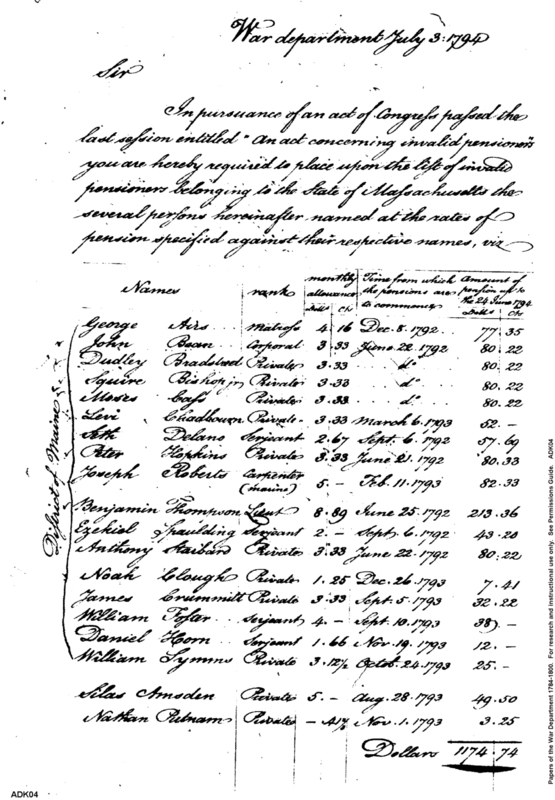 War department July 3: 1794
Sir
In pursuance of an act of Congress passed the
last session entitled "An act concerning invalid pensioners"
you are hereby required to place upon the list of invalid
pensioners belonging to the State of Massachusetts the
several persons hereinafter named at the rates of
pension specified against their respective names, viz
Names rank monthly allowance Dolls Cts Time from which the pensions are to commence Amount of pension up to the 24 June 1794 Dolls Cts
District of Maine
George Airs .. matross 4 16 Dec. 8. 1792 .. 77. 35
John Bean .. Corporal 3 33 June 22. 1792 80. 22
Dudley Bradstreet Private 3. 33 .. do .. 80. 22
Squire Bishop jr Private 3. 33 .. do .. 80. 22
Moses Cass Private 3. 33 .. do .. 80. 22
Levi Chadbourn Private 3. 33 March 6. 1793 52. –
Seth Delano Serjeant 2. 67 Sept. 6. 1792 57. 69
Peter Hopkins Private 3. 33 June 21. 1792 80. 33
Joseph Roberts Carpenter (marine) 5. – Feb. 11. 1793 82. 33
Benjamin Thompson Lieut 8. 89 June 25. 1792 213. 36
Ezekiel Spaulding Serjeant 2. – Sept. 6. 1792 43. 20
Anthony Starbard Private 3. 33 June 22. 1792 80. 22
Noah Clough Private 1. 25 Dec. 26. 1793 7. 41
James Crummitt Private 3. 33 Sept. 5. 1793 32. 22
William Foster Serjeant 4. – Sept. 10. 1793 –
Daniel Horn .. Serjeant 1. 66 Nov. 19. 1793 12. –
William Symms Private 3. 12½ Octob. 24. 1793 25. –
Silas Amsden Private 5. – Aug. 28. 1793 49. 50
Nathan Putnam Private – Nov. 1. 1793 3. 25
Dollars 1174 74
ADK04
Papers of the War Department 1784-1800. For research and instructional use only. See Permissions Guide. ADK04